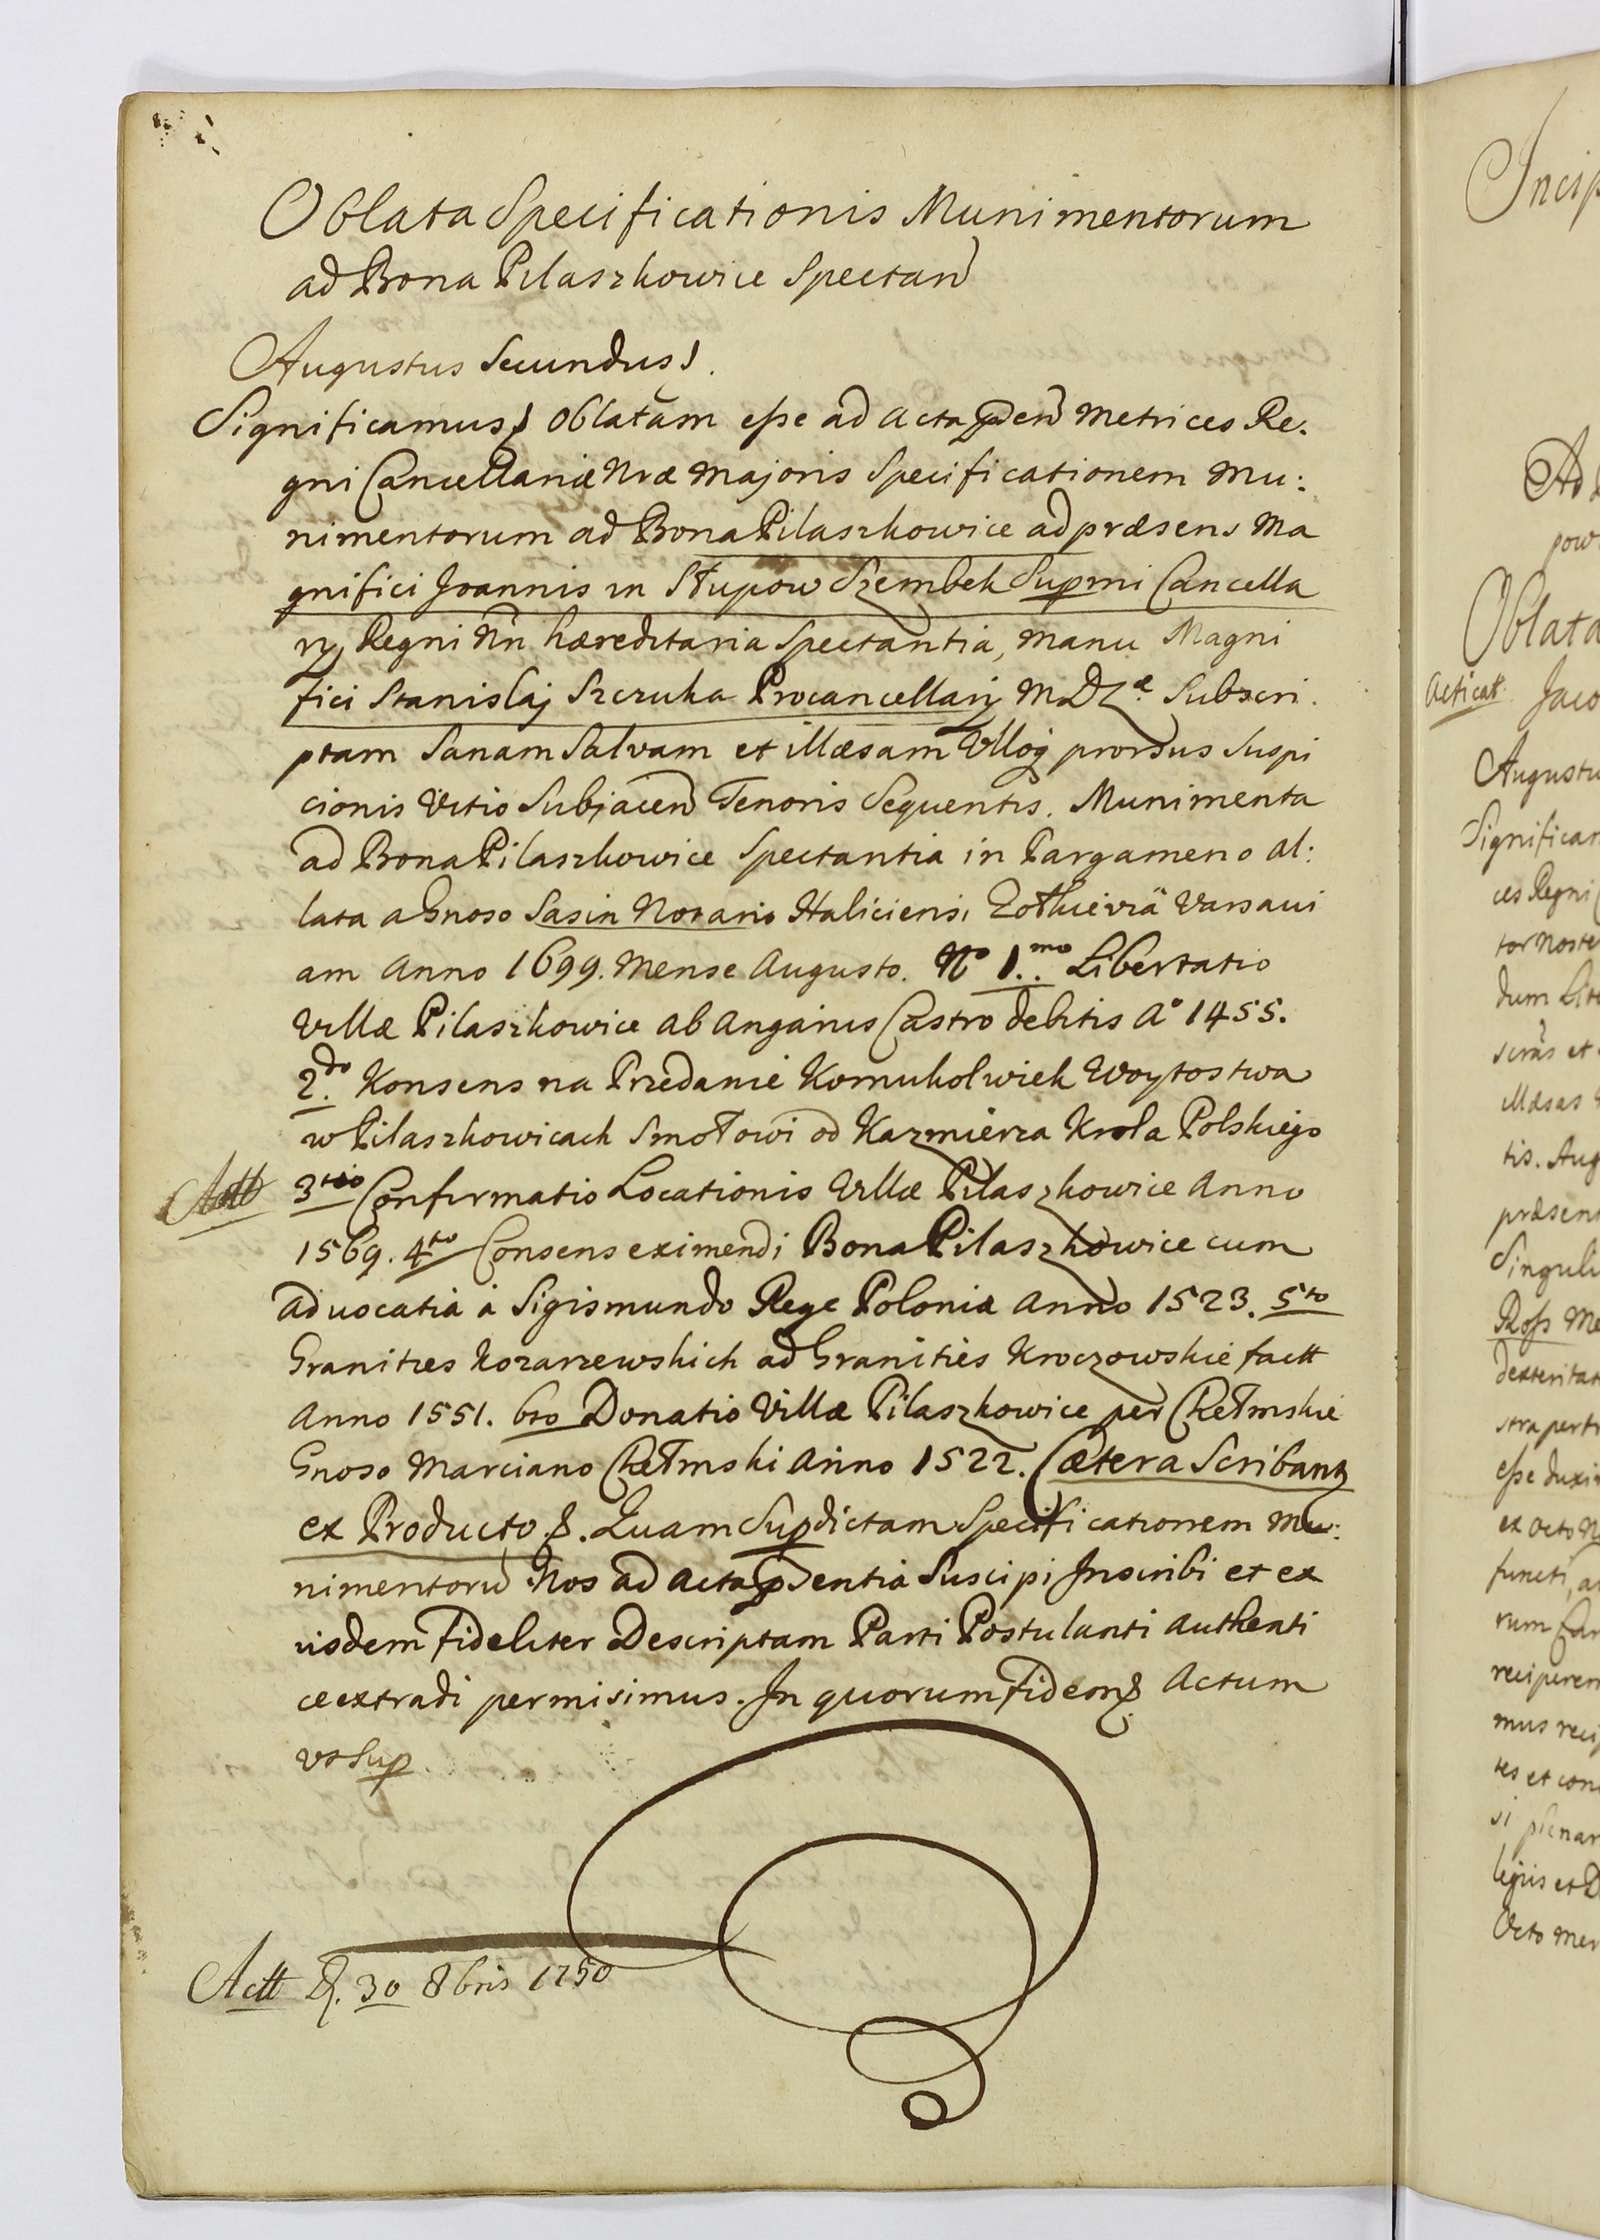 Oblata Specificationis Munimentorum
ad Bona Pilaszkowice Spectan
Augustus Secundus
Significamus Oblatam esse ad Acta pñ Metrices Re.
gni Cancellariæ Nræ Majoris Specificationem Mu:
nimentorum ad Bona Pilaszkowice ad præsens Ma
gnifici Joannis in Słupow Szembek Supmi Cancella
rij Regni Nri hæreditaria Spectantia, manu Magni
fici Stanislaj Szczuka Procancellarij M D L Subscri.
ptam Sanam Salvam et illæsam Vlloq prorsus Suspi
cionis Vitio Subjacen Tenoris Sequentis. Munimenta
ad Bona Pilaszkowice Spectantia in Pargameno al:
lata a Gnoso Sasin Notario Haliciensi Zołkievia Varsaui
am Anno 1699. Mense Augusto. No 1.mo Libertatio
Villæ Pilaszkowice ab Angarijs Castro debitis Ao 1455.
2.do Konsens na Przedanie Komukolwiek Woytostwa
w Pilaszkowicach Smotowi od Kazmierza Krola Polskiego
Actt 3tio Confirmatio Locationis Villæ Pilaszkowice Anno
1569. 4to Consens eximendi Bona Pilaszkowice cum
Aduocatia à Sigismundo Rege Poloniæ Anno 1523. 5to
Granities Kozarzewskich ad Granities Kroczowskie factt
Anno 1551. 6to Donatio Villæ Pilaszkowice per Chełmskie
Gnoso Marciano Chełmski Anno 1522. Cætera Scribantz
ex Producto &. Quam Supdictam Specificationem Mu:
nimentorū Nos ad Acta pñentia Suscipi Inscribi et ex
iisdem fideliter Descriptam Parti Postulanti Authenti
ce extradi permisimus. In quorum Fidem& Actum
vt Sup
Actt D. 30 8bris 1750
Incip
Ad
pow
Oblata
Acticat. Jaco
Augustu
Significam
ces Regni C
tor Noste
dum Lit
scras et
illæsas
tis. Aug
præsen
Singuli
Ross Me
dexteritat
stra perti
esse duxi
ex Octo N
functi, a
rum Can
reciperem
mus reci
tes et con
si plenar
legijs et D
Octo Men